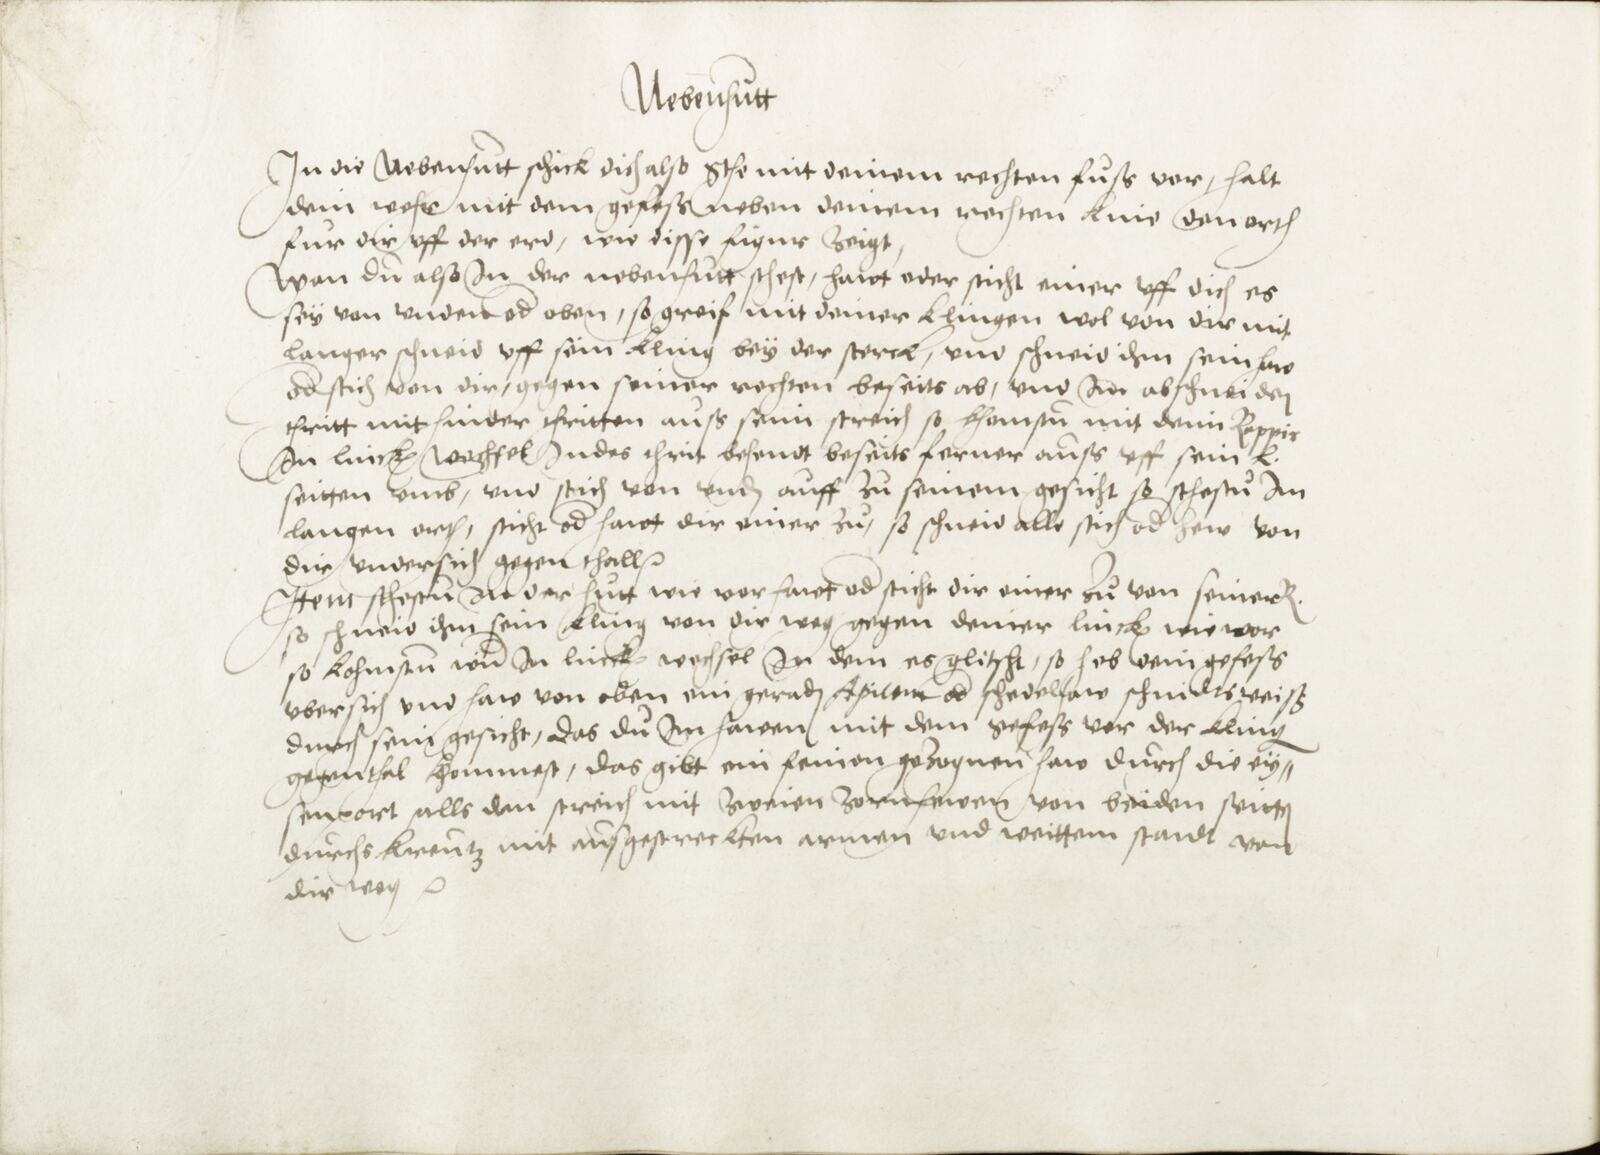 Nebenhutt
In die Nebenhutt schick dich also Sthe mit deinem rechten fuss vor, halt
dein wehr mit dem gefess neben deinem rechten knie den orth
fur dir vff der erd, wie disse figur Zeigt,
Wan du also In der nebenhutt sthest, hawt oder sticht einer vff dich es
sey von vnden od oben, so greif mit deiner klingen wol von dir mit
langer schneid vff sein kling bey der sterck, vnd schneid ihm sein haw
od stich von dir, gegen seiner rechten beseits ab, vnd Im abschneiden
thritt mit hinder thritten auss seim streich so khomstu mit deim Rappir
In linck wechsel Indes thrit behendt beseits ferner auss vff sein L.
seitten vmb, vnd stich von vnd auff Zu seinem gesicht so sthestu Im
langen orth, sticht od hawt dir einer Zu, so schneid alle stich od hew von
dir vndersich gegen thall
Item sthestu In der hutt wie vor hawt od sticht dir einer Zu von seiner R.
so schneid ihm sein kling von dir weg gegen deiner linck wie vor
so kohmstu In linck wechsel In dem es glitscht, so heb dein gefess
vbersich vnd haw von oben ein gerad od schedelhaw schnidtsweiss
durch sein gesicht, das du Im hawen mit dem gefess vor der kling
gegenthal kommest, das gibt ein feinen gezognen haw durch die ey//
senport alls dan streich mit Zweien Zornhewen von beiden seitt
durchs kreutz mit aussgestreckten armen vnd weittem standt von
dir weg